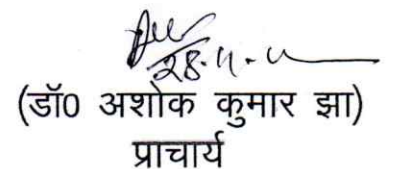 28.11.
(डॉ0 अशोक कुमार झा)
प्राचार्य